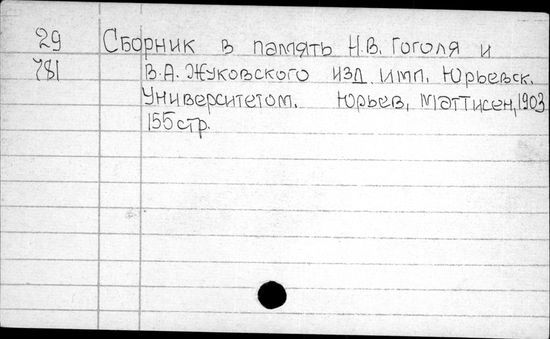 29 Сборник в память Н.В. Гоголя и
781 В.А. Жуковского изд. имп. Юрьевск.
Университетом. Юрьев, Маттисен, 1903
155 стр.